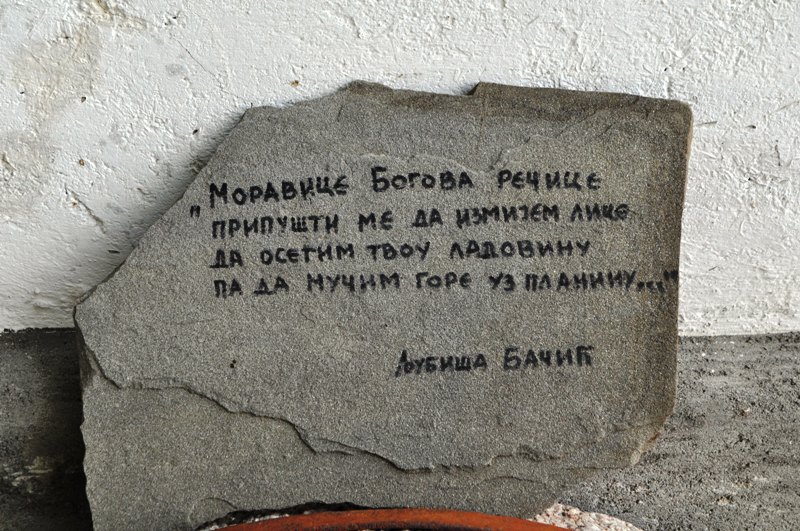 „Моравице Богова речице
припушти ме да измијем лице
да осетим твоу ладовину
па да мучим горе уз планину..."
Љубиша Бачић